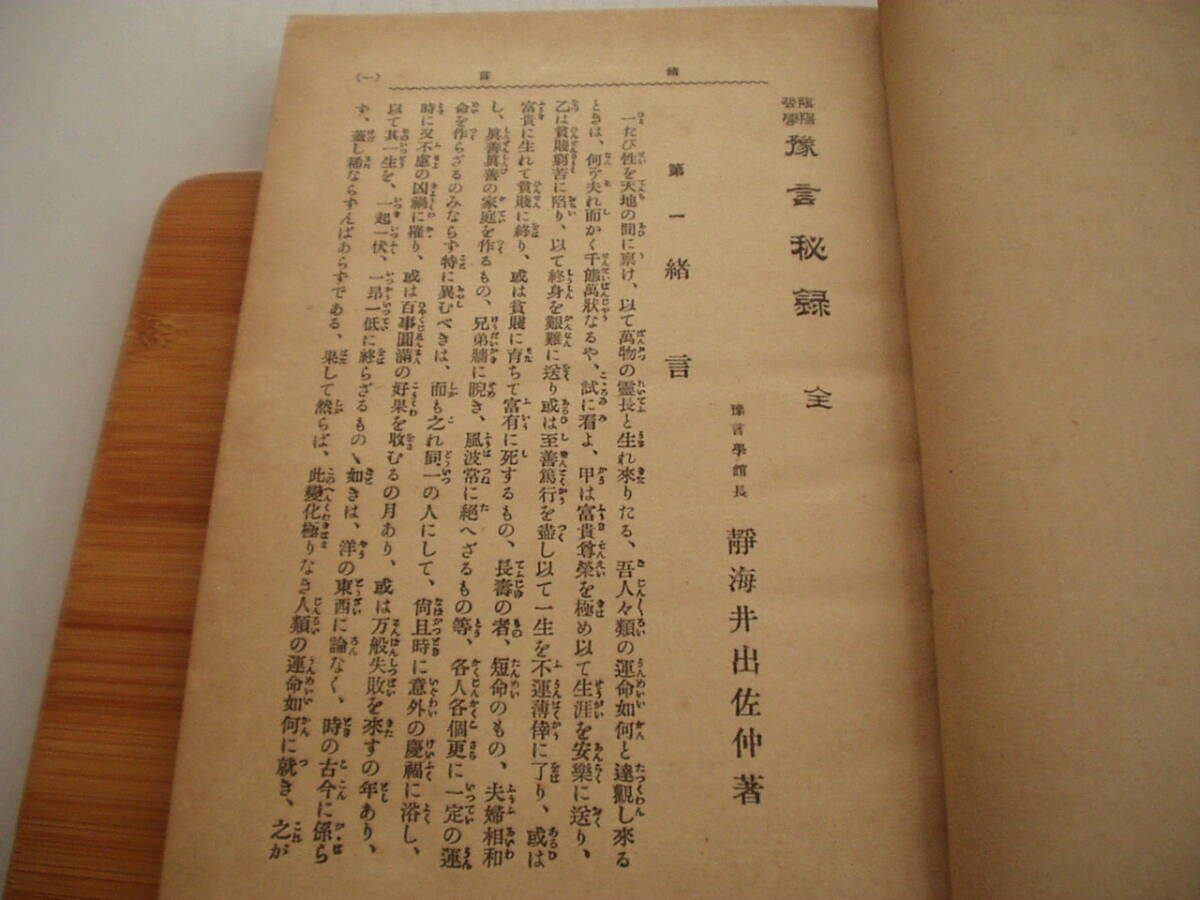 陰陽
發學
豫言秘録 全
豫言學館長 靜海井出佐仲著
緒言
(一)
第一 緒言
一たび性を天地の間に禀け、以て萬物の靈長と生れ來りたる、吾人々類の運命如何と達觀し來る
ときは、何ぞ夫れ而かく千態萬狀なるや、試に看よ、甲は富貴尊榮を極め以て生涯を安樂に送り、
乙は貧賤窮苦に陷り、以て終身を艱難に送り或は至善篤行を盡し以て一生を不運薄倖に了り、或は
富貴に生れて貧賤に終り、或は貧賤に育ちて富有に死するもの、長壽の者、短命のもの、夫婦相和
し、眞善眞善の家庭を作るもの、兄弟牆に睨き、風波常に絕へざるもの等、各人各個更に一定の運
命を作らざるのみならず特に異むべきは、而も之れ同一の人にして、尙且時に意外の慶福に浴し、
時に又不慮の凶禍に罹り、或は百事圓滿の好果を收むるの月あり、或は万般失敗を來すの年あり、
以て其一生を、一起一伏、一昂一低に終らざるものゝ如きは、洋の東西に論なく、時の古今に係ら
ず、蓋し稀ならずんばあらずである、果して然らば、此變化極りなき人類の運命如何に就き、之が